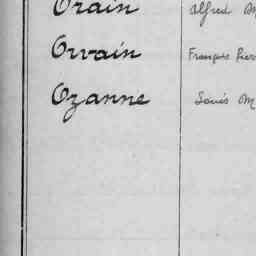 Orain Alfred M
Orvain François Pier
Ozanne Louis M